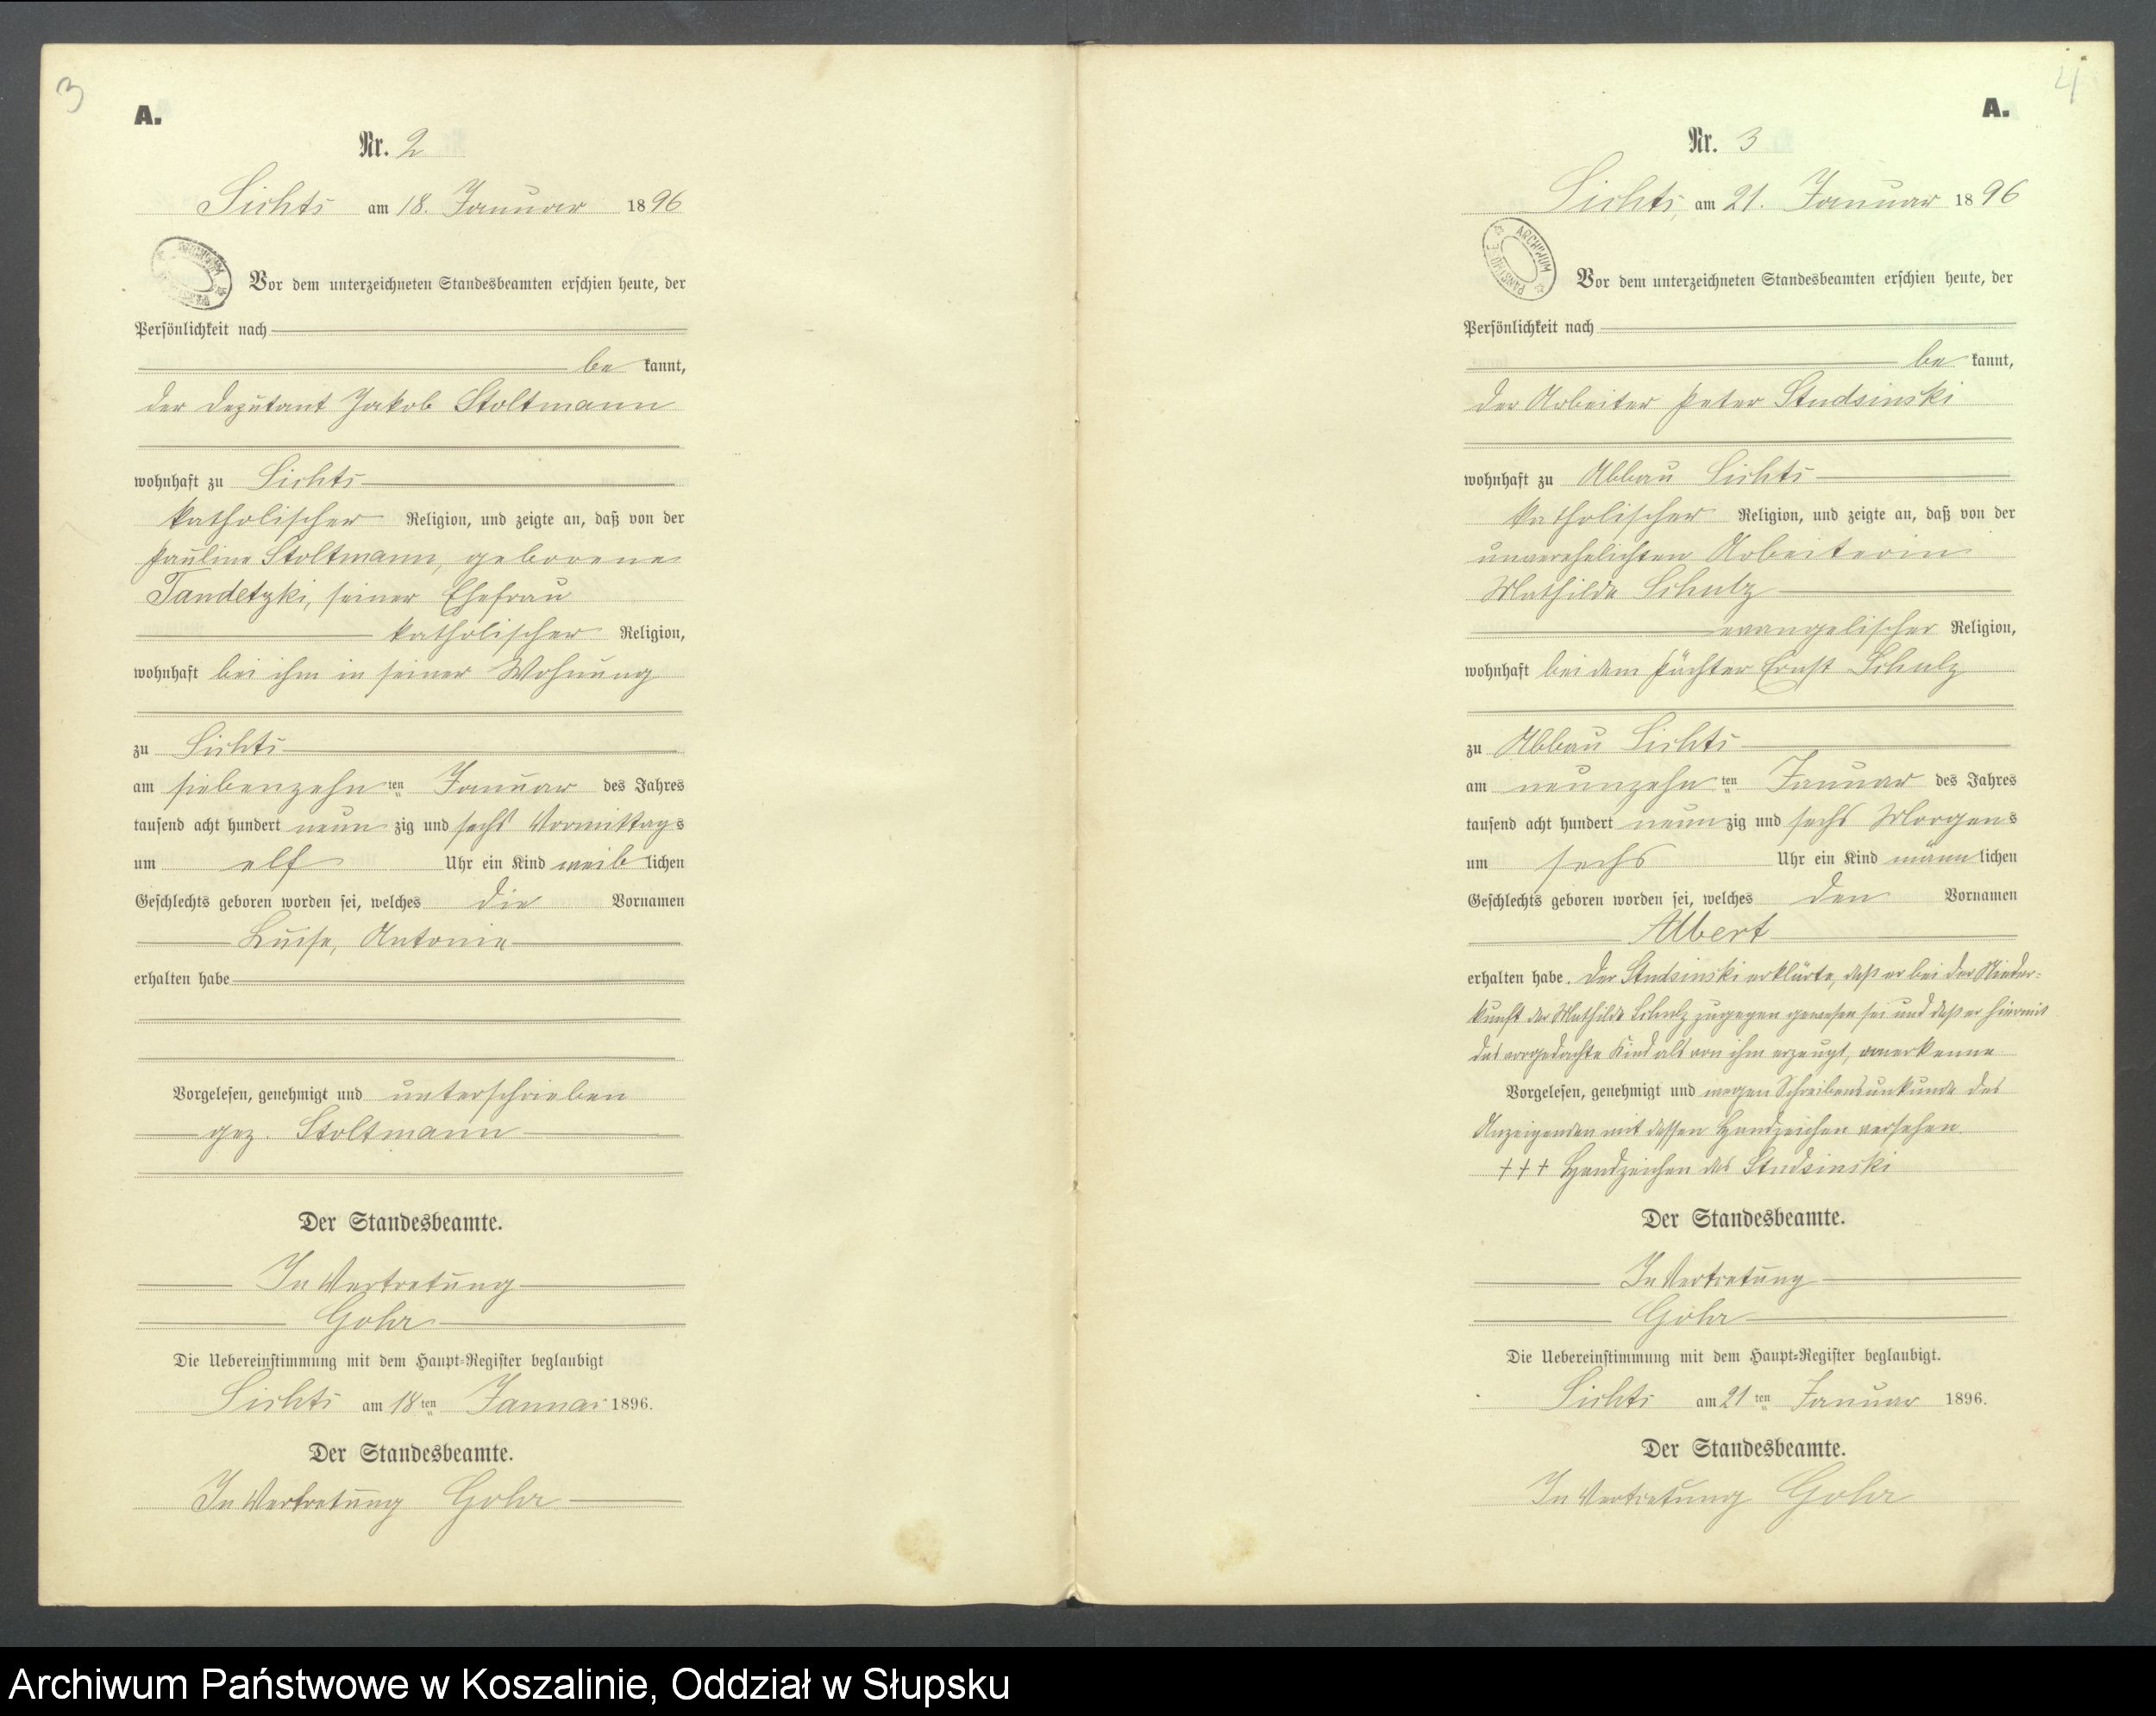 3
A.
Nr. 2
Lichts am 18. Januar 1896
Vor dem unterzeichneten Standesbeamten erschien heute, der
Persönlichkeit nach
be kannt,
der Deputant Jakob Stoltmann
wohnhaft zu Lichts
katholischer Religion, und zeigte an, daß von der
Pauline Stoltmann, geborene
Tandetzki, seiner Ehefrau
katholischer Religion,
wohnhaft bei ihm in seiner Wohnung
zu Lichts
am siebenzehn ten Januar des Jahres
tausend acht hundert neun zig und sechs Vormittags
um elf Uhr ein Kind weib lichen
Geschlechts geboren worden sei, welches die Vornamen
Luise, Antonie
erhalten habe
Vorgelesen, genehmigt und unterschrieben
gez. Stoltmann
Der Standesbeamte.
In Vertretung
Gohr
Die Uebereinstimmung mit dem Haupt-Register beglaubigt
Lichts am 18 ten Januar 1896.
Der Standesbeamte.
In Vertretung Gohr
4
A.
Nr. 3
Lichts, am 21. Januar 1896
ARCHIWUM PAŃSTWOWE
Vor dem unterzeichneten Standesbeamten erschien heute, der
Persönlichkeit nach
be kannt,
der Arbeiter Peter Studsinski
wohnhaft zu Abbau Lichts
katholischer Religion, und zeigte an, daß von der
unverehelichten Arbeiterin
Mathilde Schulz
evangelischer Religion,
wohnhaft bei dem Pächter Ernst Schulz
zu Abbau Lichts
am neunzehn ten Januar des Jahres
tausend acht hundert neun zig und sechs Morgens
um sechs Uhr ein Kind männ lichen
Geschlechts geboren worden sei, welches den Vornamen
Albert
erhalten habe. Der Studsinski erklärte, daß er bei der Nieder=
kunft der Mathilde Schulz zugegen gewesen sei und daß er hiermit
das vorgedachte Kind als von ihm erzeugt, anerkenne
Vorgelesen, genehmigt und wegen Schreibensunkunde des
Anzeigenden mit dessen Handzeichen versehen.
+++ Handzeichen des Studsinski
Der Standesbeamte.
In Vertretung
Gohr
Die Uebereinstimmung mit dem Haupt-Register beglaubigt.
Lichts am 21 ten Januar 1896.
Der Standesbeamte.
In Vertretung Gohr
Archiwum Państwowe w Koszalinie, Oddział w Słupsku